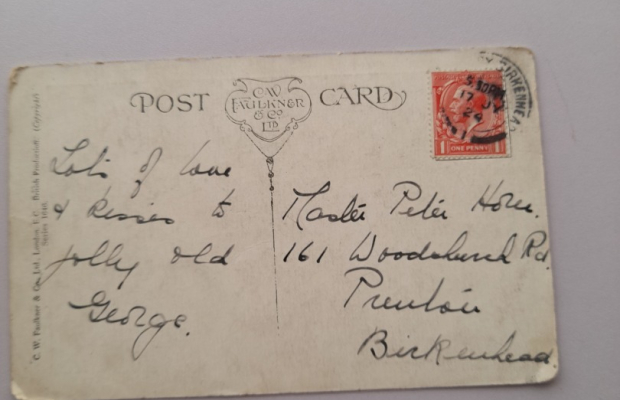 POST CARD
C.W.
FAULKNER
& Co
LTD
Lots of love
& kisses to
jolly old
George.
Master Peter
161 Rd.
Prenton
Birkenhead
BIRKENHEAD
5.30PM
17
24
1 ONE PENNY 1
C. W. Faulkner & Co., Ltd., London, E.C. British Production. (Copyright)
Series